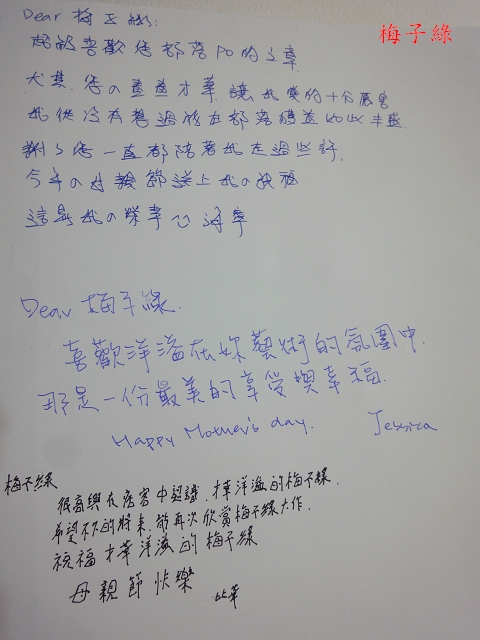 梅子綠
Dear 梅子綠:
超級喜歡您部落po的文章
尤其.您的畫畫才華.讓我真的十分厲害
我從沒有想過能在部落
謝謝您一直都陪著我走過些許
今年的母親節送上我的祝福
這是我的榮幸
Dear 梅子綠.
喜歡洋溢在妳藝術的氛圍中.
那是一份最美的享受與幸福.
Happy Mother's day. Jessica
梅子綠
很高興在痞客中認識.才華洋溢的梅子綠.
希望不久的將來.能再次欣賞梅子綠大作.
祝福才華洋溢的梅子綠
母親節快樂
比華